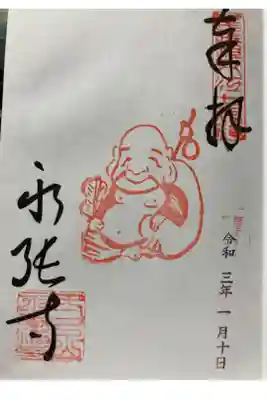 奉拝
令和 三年 一月十日
永張寺